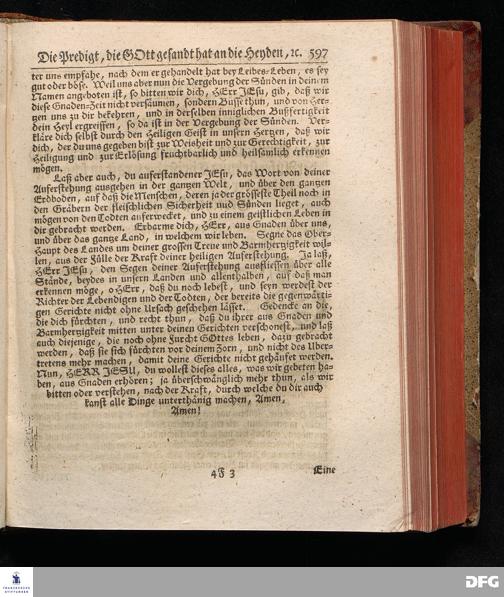 Die Predigt, die GOtt gesandt hat an die Heyden, ꝛc. 597
ter uns empfahe, nach dem er gehandelt hat bey Leibes-Leben, es sey
gut oder böse. Weil uns aber nun die Vergebung der Sünden in deinem
Namen angeboten ist, so bitten wir dich, HErr JEsu, gib, daß wir
diese Gnaden-Zeit nicht versäumen, sondern Busse thun, und von Her-
tzen uns zu dir bekehren, und in derselben inniglichen Bußfertigkeit
dein Heyl ergreiffen, so da ist in der Vergebung der Sünden. Ver-
kläre dich selbst durch den Heiligen Geist in unsern Hertzen, daß wir
dich, der du uns gegeben bist zur Weisheit und zur Gerechtigkeit, zur
Heiligung und zur Erlösung fruchtbarlich und heilsamlich erkennen
mögen.
Laß aber auch, du auferstandener JEsu, das Wort von deiner
Auferstehung ausgehen in der gantzen Welt, und über den gantzen
Erdboden, auf daß die Menschen, deren ja der grösseste Theil noch in
den Gräbern der fleischlichen Sicherheit und Sünden lieget, auch
mögen von den Todten auferwecket, und zu einem geistlichen Leben in
dir gebracht werden. Erbarme dich, HErr, aus Gnaden über uns,
und über das gantze Land, in welchem wir leben. Segne das Ober-
Haupt des Landes um deiner grossen Treue und Barmhertzigkeit wil-
len, aus der Fülle der Kraft deiner heiligen Auferstehung. Ja laß,
HErr JEsu, den Segen deiner Auferstehung ausfliessen über alle
Stände, beydes in unsern Landen und allenthalben, auf daß man
erkennen möge, o HErr, daß du noch lebest, und seyn werdest der
Richter der Lebendigen und der Todten, der bereits die gegenwärti-
gen Gerichte nicht ohne Ursach geschehen lässet. Gedencke an die,
die dich fürchten, und recht thun, daß du ihrer aus Gnaden und
Barmhertzigkeit mitten unter deinen Gerichten verschonest, und laß
auch diejenige, die noch ohne Furcht GOttes leben, dazu gebracht
werden, daß sie sich fürchten vor deinem Zorn, und nicht des Uber-
tretens mehr machen, damit deine Gerichte nicht gehäufet werden.
Nun, HERR JESU, du wollest dieses alles, was wir gebeten ha-
ben, aus Gnaden erhören; ja überschwänglich mehr thun, als wir
bitten oder verstehen, nach der Kraft, durch welche du dir auch
kanst alle Dinge unterthänig machen, Amen,
Amen!
4F 3 Eine
FRANCKESCHE
STIFTUNGEN
DFG